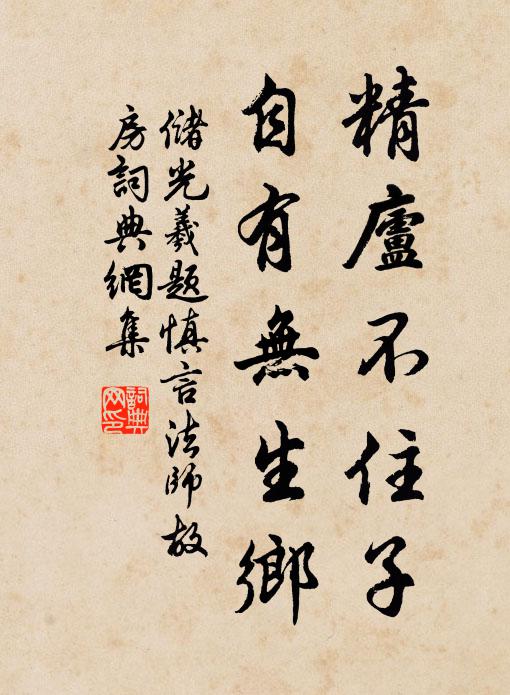 精廬不住子
自有無生鄉
儲光羲題慎言法師故
房詞典網集
詞典
网印